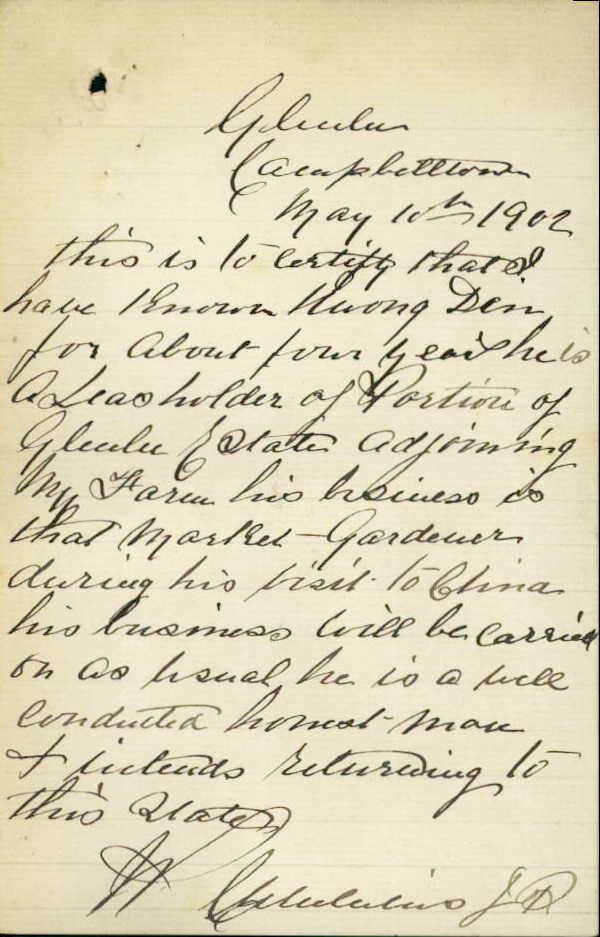 Glenlee
Campbelltown
May 10th 1902
this is to certify that I
have Known Kwong Den
for about four years he is
A Leasholder of Portion of
Glenlee Estate adjoining
My Farm his business is
that Market-Gardener
during his visit to China
his business will be carried
on as usual he is a well
conducted honest man
& intends returning to
this State
W J P